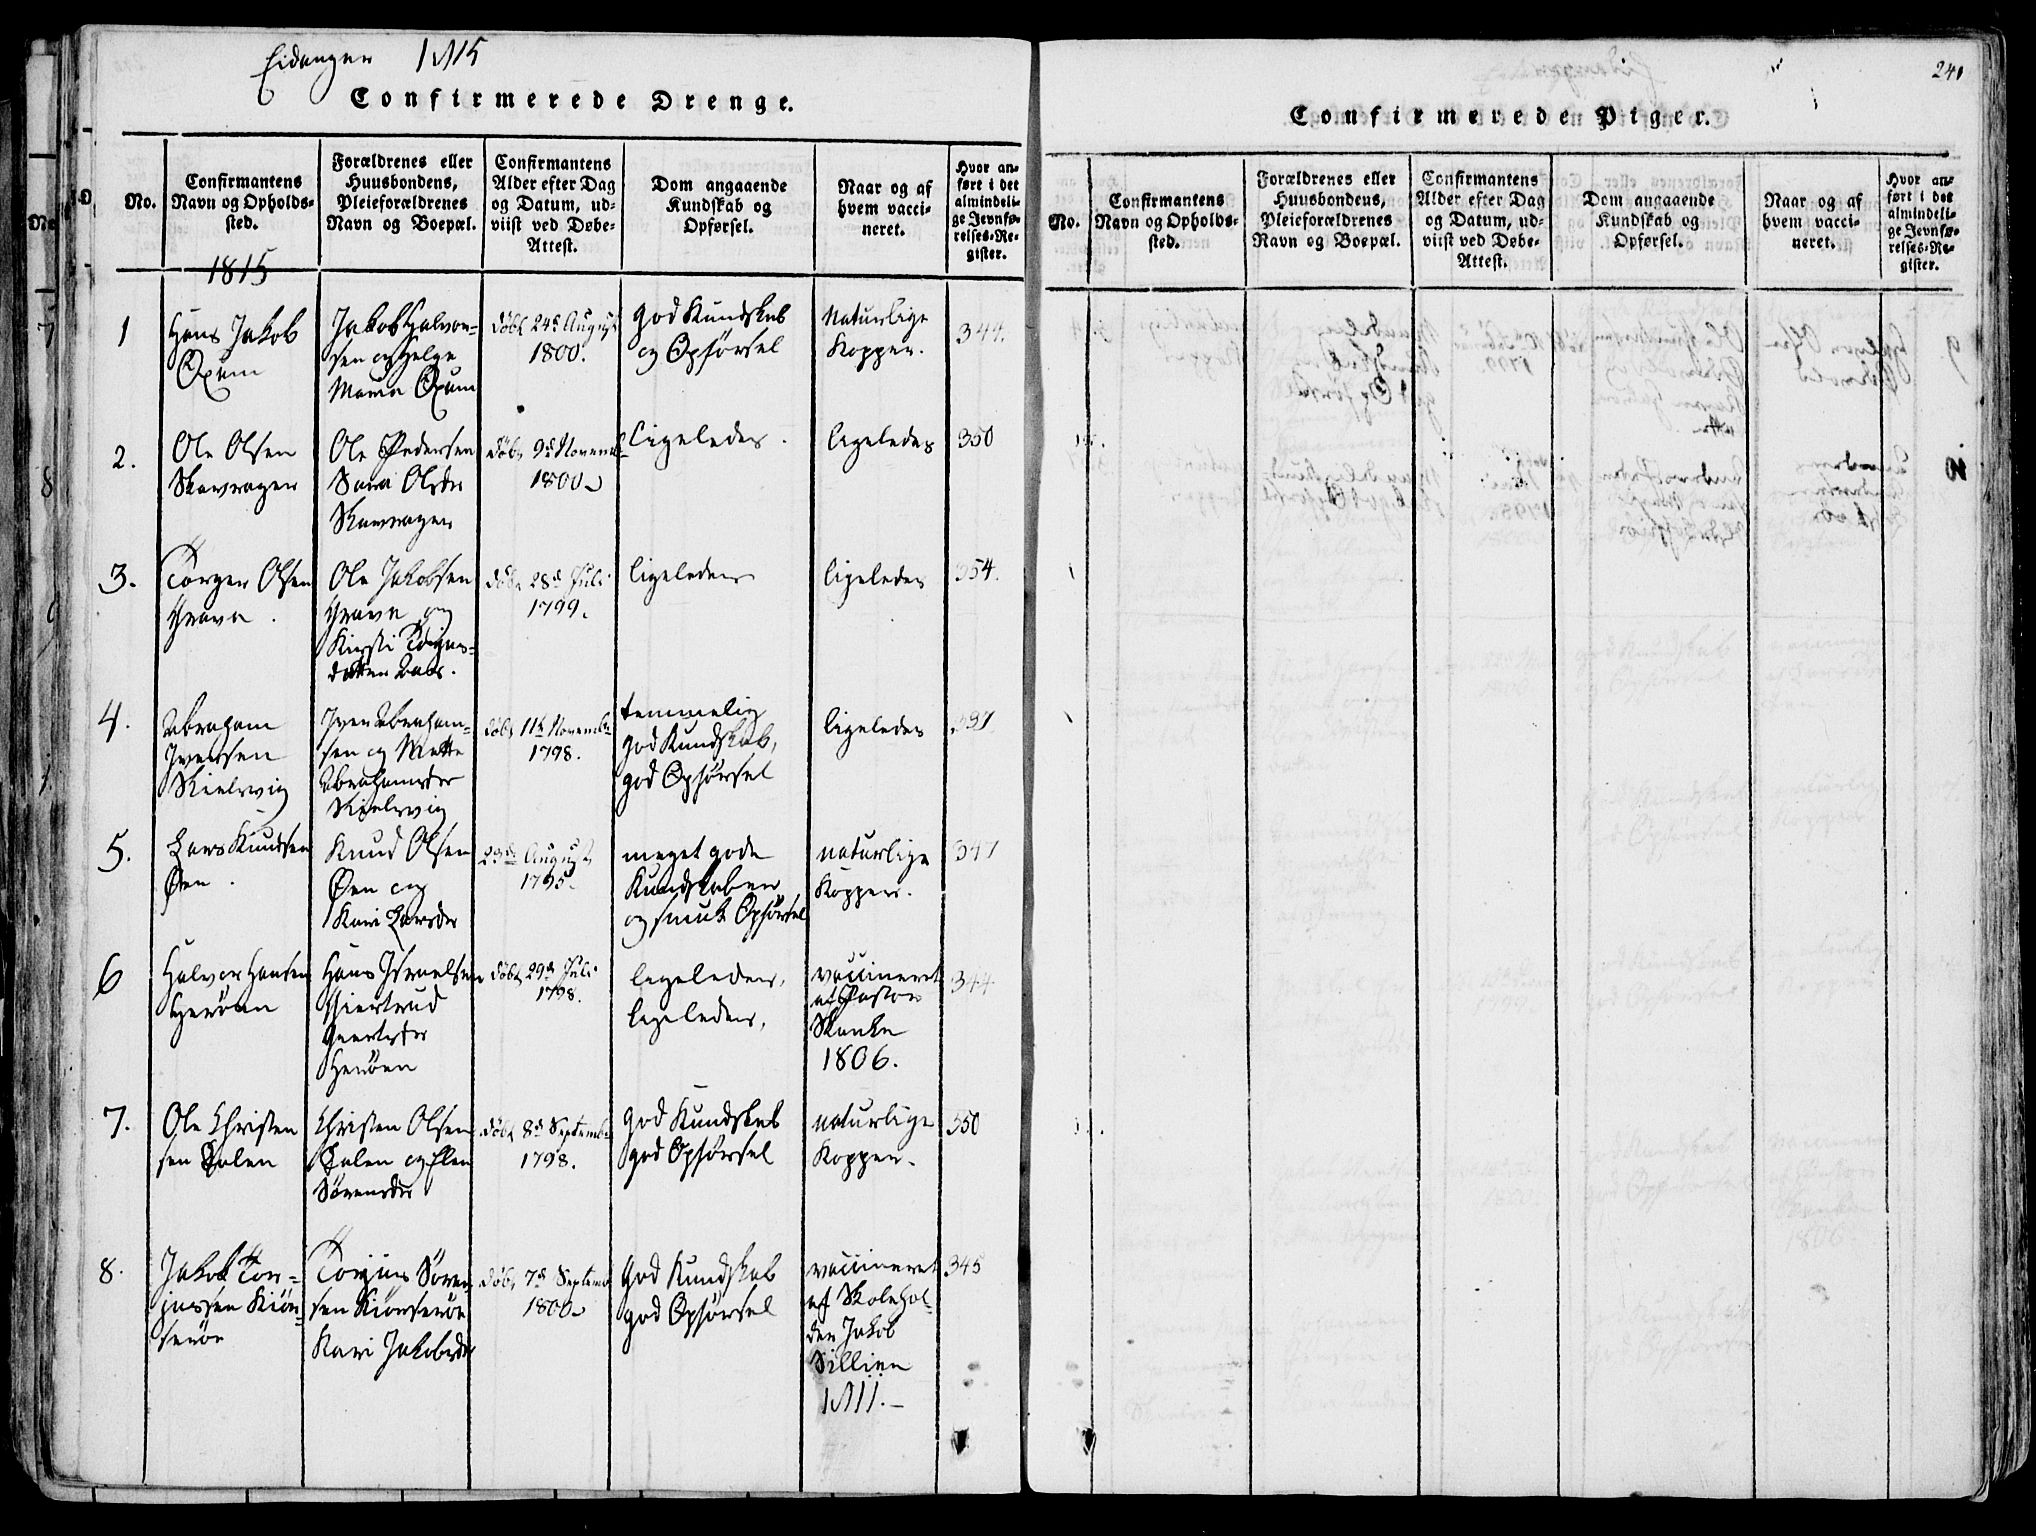 Eidanger 1815
Confirmerede Drenge.
No.
Confirmantens
Navn og Opholds-
sted.
Forældrenes eller
Huusbondens,
Pleieforældrenes
Navn og Boepæl.
Confirmantens
Alder efter Dag
og Datum, ud-
viist ved Døbe-
Attest.
Dom angaaende
Kundskab og
Opførsel.
Naar og af
hvem vacci-
neret.
Hvor an-
ført i det
almindeli-
ge Jevnfø-
relses-Re-
gister.
1815
1
Hans Jakob
Oxum
Jakob Halvor-
sen og Helge
Maria Oxum
døbt 24d August
1800.
god Kundskab
og Opførsel
Naturlige
Kopper.
344.
2.
Ole Olsen
Skavragen
Ole Pedersen
Sara Olsdr
Skavragen
døbt 9d Novemb
1800
ligeledes.
ligeledes
350
3.
Torger Olsen
Grava.
Ole Jakobsen
Grave og
Kirsti
datter
døbt 28d Juli
1799.
ligeledes
ligeledes
354.
4.
Abraham
Iversen
Kielsvig
Iver Abraham-
sen og Mette
Abrahamsdr
Kielsvig
døbt 11d Novemb
1798.
temmelig
god Kundskab,
god Opførsel
ligeledes
337
5.
Lars Knudsen
Øen.
Knud Olsen
Øen og
Kari Larsdr
23de August
1795.
meget gode
Kundskaber
og smuk Opførsel
naturlige
Kopper.
347
6
Halvor Hansen
Herøen
Hans Israelsen
Giertrud
Geertsdr
Herøen
døbt 29d Juli
1798.
ligeledes,
ligeledes,
vaccineret
af Pastor
Skanke
1806.
344
7.
Ole Christen
sen Dalen
Christen Olsen
Dalen og Elen
Sørensdr
døbt 8d Septemb
1798.
god Kundskab
god Opførsel
naturlige
Kopper.
350
8.
Jakob Tor-
jussen Kiøn-
serøe
Torjus Søren
sen Kiønserøe
Kari Jakobsdr
døbt 7d Septemb
1800
god Kundskab
god Opførsel
vaccineret
af Skolehol-
der Jakob
Sillien
1811.
345
241
Confirmerede Piger.
No.
Confirmantens
Navn og Opholds-
sted.
Forældrenes eller
Huusbondens,
Pleieforældrenes
Navn og Boepæl.
Confirmantens
Alder efter Dag
og Datum, ud-
viist ved Døbe-
Attest.
Dom angaaende
Kundskab og
Opførsel.
Naar og af
hvem vacci-
neret.
Hvor an-
ført i det
almindeli-
ge Jevnfø-
relses-Re-
gister.